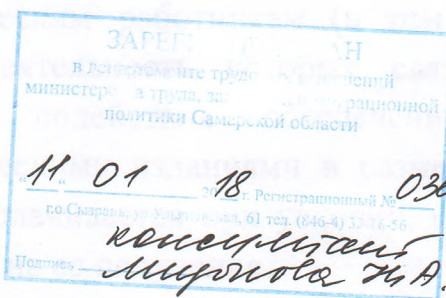 ЗАРЕГ Н
в департаменте трудо ений
министерс ва труда, за грационной
политики Самарской области
"11" 01 2018 г. Регистрационный № 03
г.о Сызрань, ул Ульяновская, 61 тел. (846-4) 33-26-56
консультант
Подпись